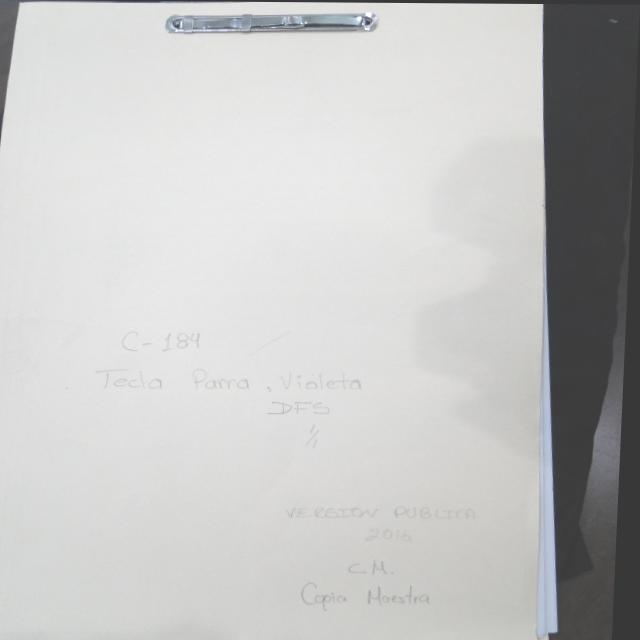 C-189
Tecla Parra, Violeta
DFS
1/1
VERSION PUBLICA
2016
C.M.
Copia Maestra